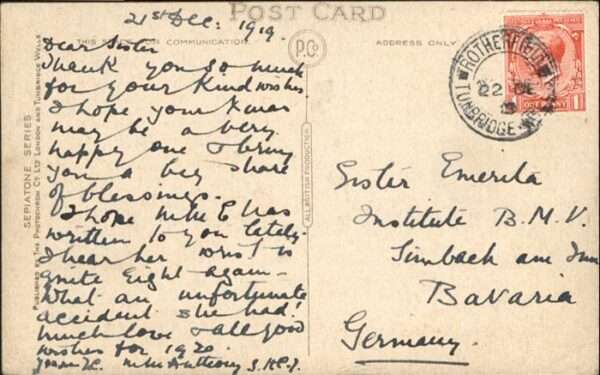 POST CARD
THIS SPACE FOR COMMUNICATION.
ADDRESS ONLY
P.Co
21st Dec: 1919.
Dear Sister
Thank you so much
for your kind wishes
I hope your Xmas
may be a very
happy one & bring
you a big share
of blessings.
I hope M. E has
written to you lately.
I hear her wrist is
quite right again—
What an unfortunate
accident she had!
Much love & all good
wishes for 1920.
M. Anthony
SEPIATONE SERIES
PUBLISHED BY THE PHOTOCHROM CO. LTD LONDON AND TUNBRIDGE WELLS
ALL BRITISH PRODUCTION
ROTHERFIELD
22 DE
TUNBRIDGE
ONE PENNY
1
Sister Emerita
Institute B.M.V.
Simbach am Inn
Bavaria
Germany.